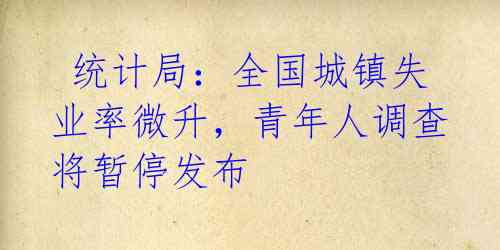 统计局：全国城镇失
业率微升，青年人调查
将暂停发布